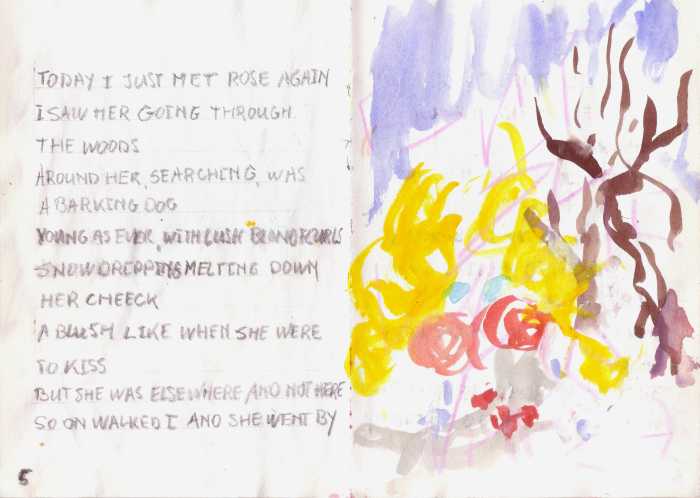 TODAY I JUST MET ROSE AGAIN
I SAW HER GOING THROUGH
THE WOODS
AROUND HER, SEARCHING, WAS
A BARKING DOG
YOUNG AS EVER, WITH LUSH BLOND CURLS
SNOWDROPPINGS MELTING DOWN
HER CHEECK
A BLUSH LIKE WHEN SHE WERE
TO KISS
BUT SHE WAS ELSEWHERE AND NOT HERE
SO ON WALKED I AND SHE WENT BY
5